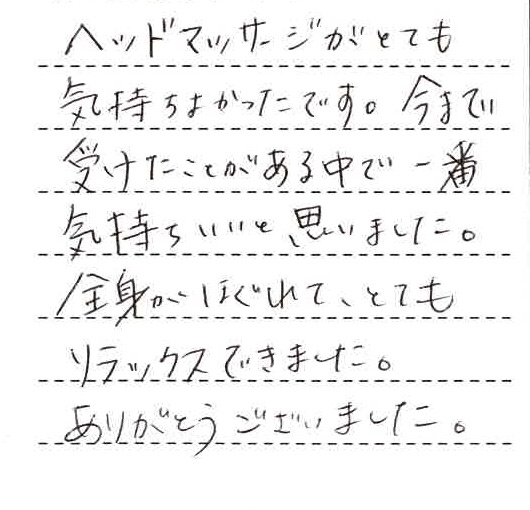 ヘッドマッサージがとても
気持ちよかったです。今まで
受けたことがある中で一番
気持ちいいと思いました。
全身がほぐれて、とても
リラックスできました。
ありがとうございました。